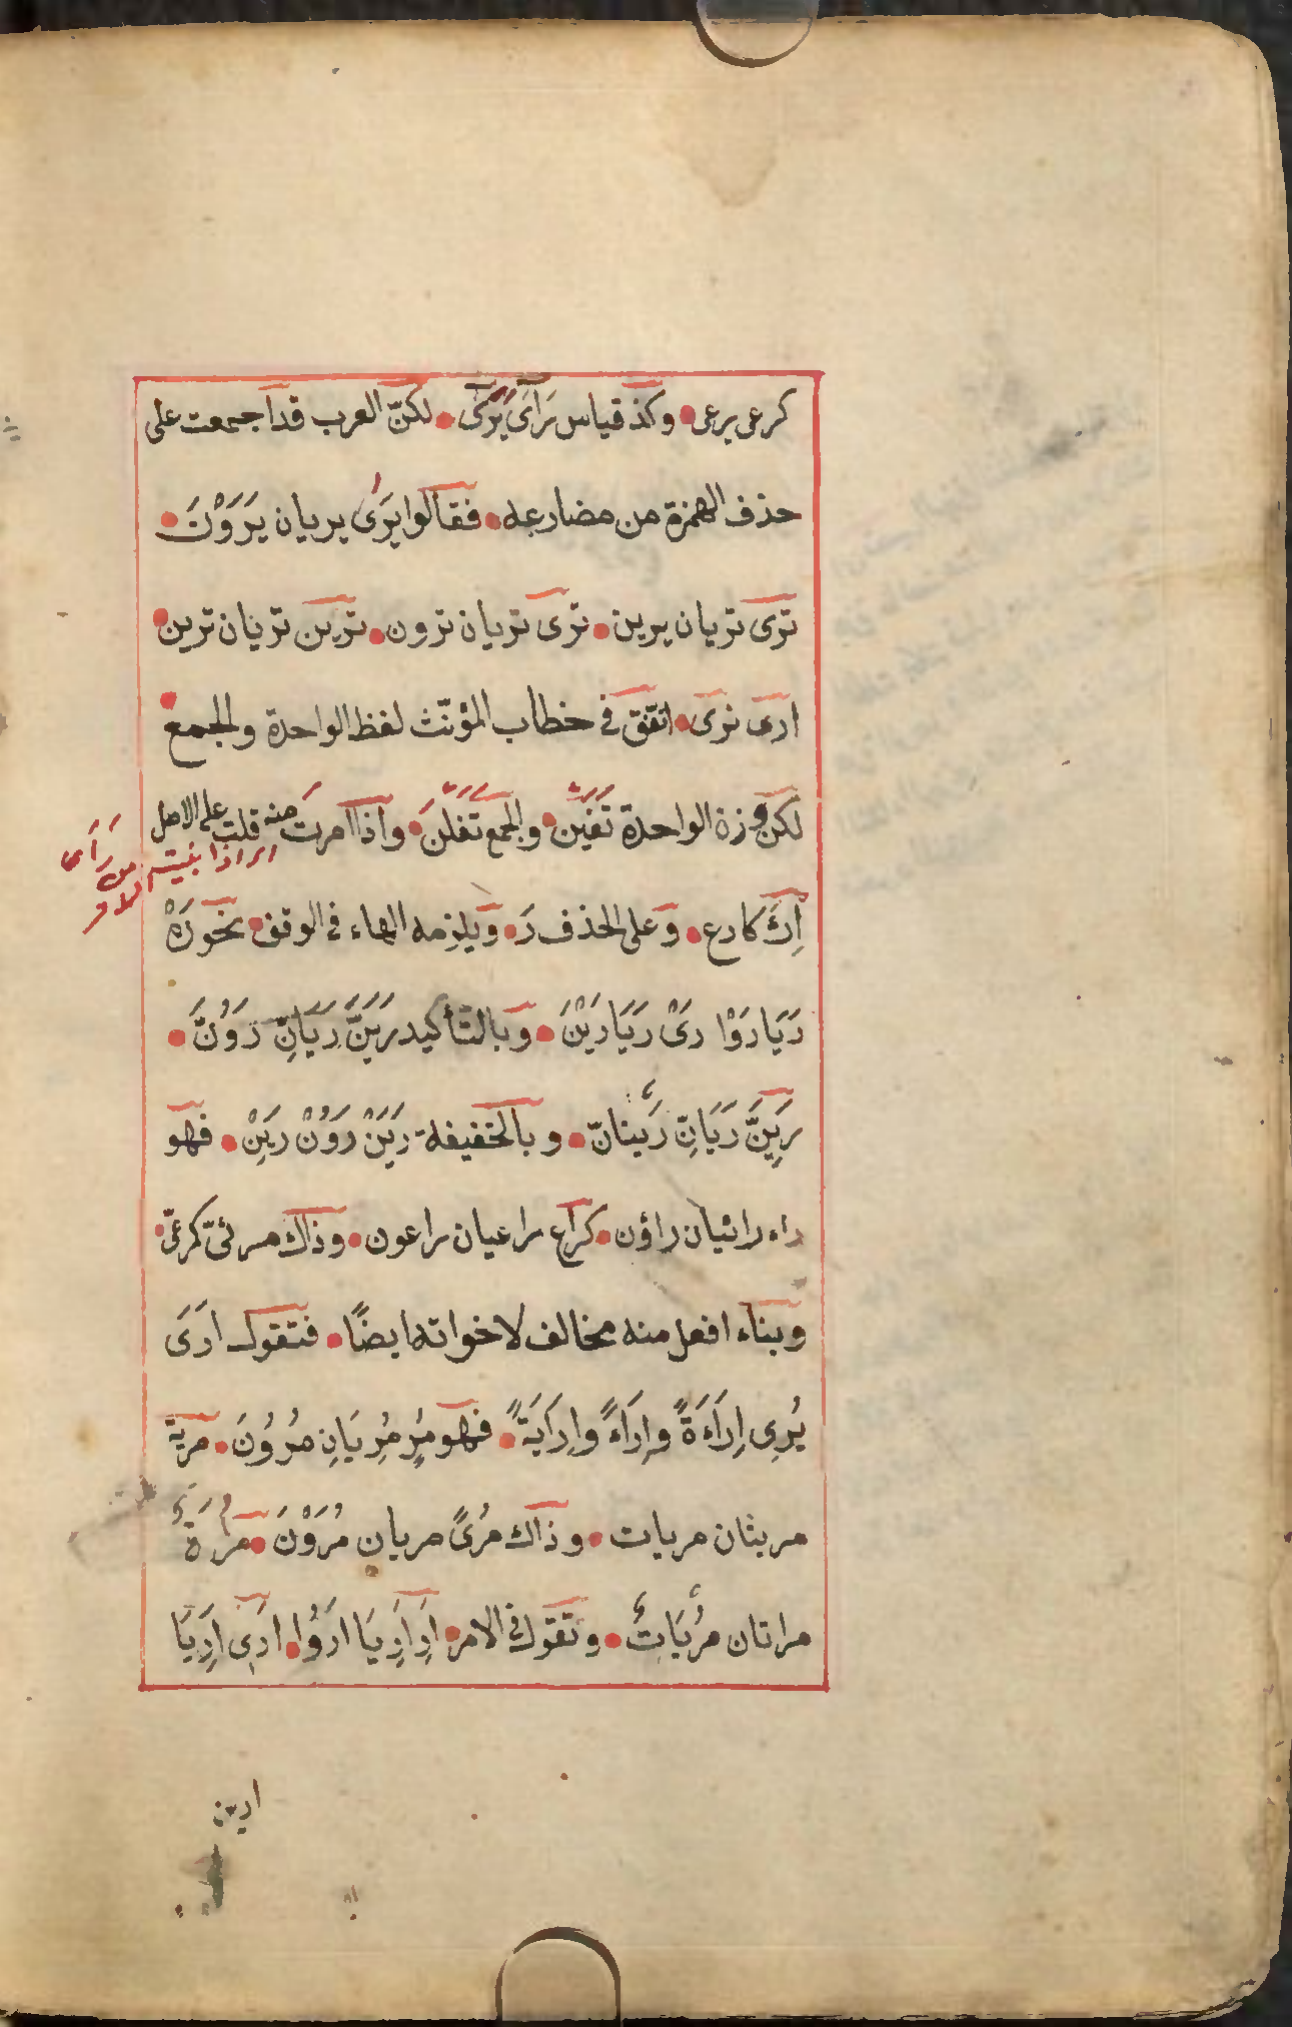 كرعى يرعى • وكذ قياس رَأى يَرْئَى • لكنّ العرب قد اجمعت على
حذف الهمزة من مضارعه • فقالوا يَرَى يريان يَرَوْنَ •
ترى تريان يرين • ترى تريان ترون • ترين تريان ترين •
ارى نرى • اتفق فى خطاب المؤنّث لفظ الواحدة والجمع •
لكن وزنة الواحدة تَفَيْن • والجمع تَفَلْنَ • واذا امرتَ منه قلت على الاصل
اى اذا بنيت الامر من رَأَى
اِرْءَ كارع • وعلى الحذف رَ • ويلزمه الهاء فى الوقف • نحو رَهْ
رَيَا رَوْا رَىْ رَيَا رَيْنَ • وبالتأكيد رَيَنَّ رَيَانِّ رَوُنَّ •
رَيِنَّ رَيَانِّ رَيْنانّ • وبالخفيفة رَيَنْ رَوُنْ رَيِنْ • فهو
راء رائيان راؤن • كراع راعيان راعون • وذاك مرئىّ كمرعىّ •
وبناء افعل منه مخالف لاخواته ايضًا • فتقول ارَى
يُرِى اِرَاءَةً وإِرَاءً وإِرَايَةً • فهو مُرٍ مُرِيَانِ مُرُوُنَ • مرية
مريتان مريات • وذاك مُرىً مريان مُرَوْنَ • مُرَاة
مراتان مُرَيَاتٌ • وتقول فى الامر • اَرِ اَرِيَا ارُوْا • ارِى اَرِيَا
ارين